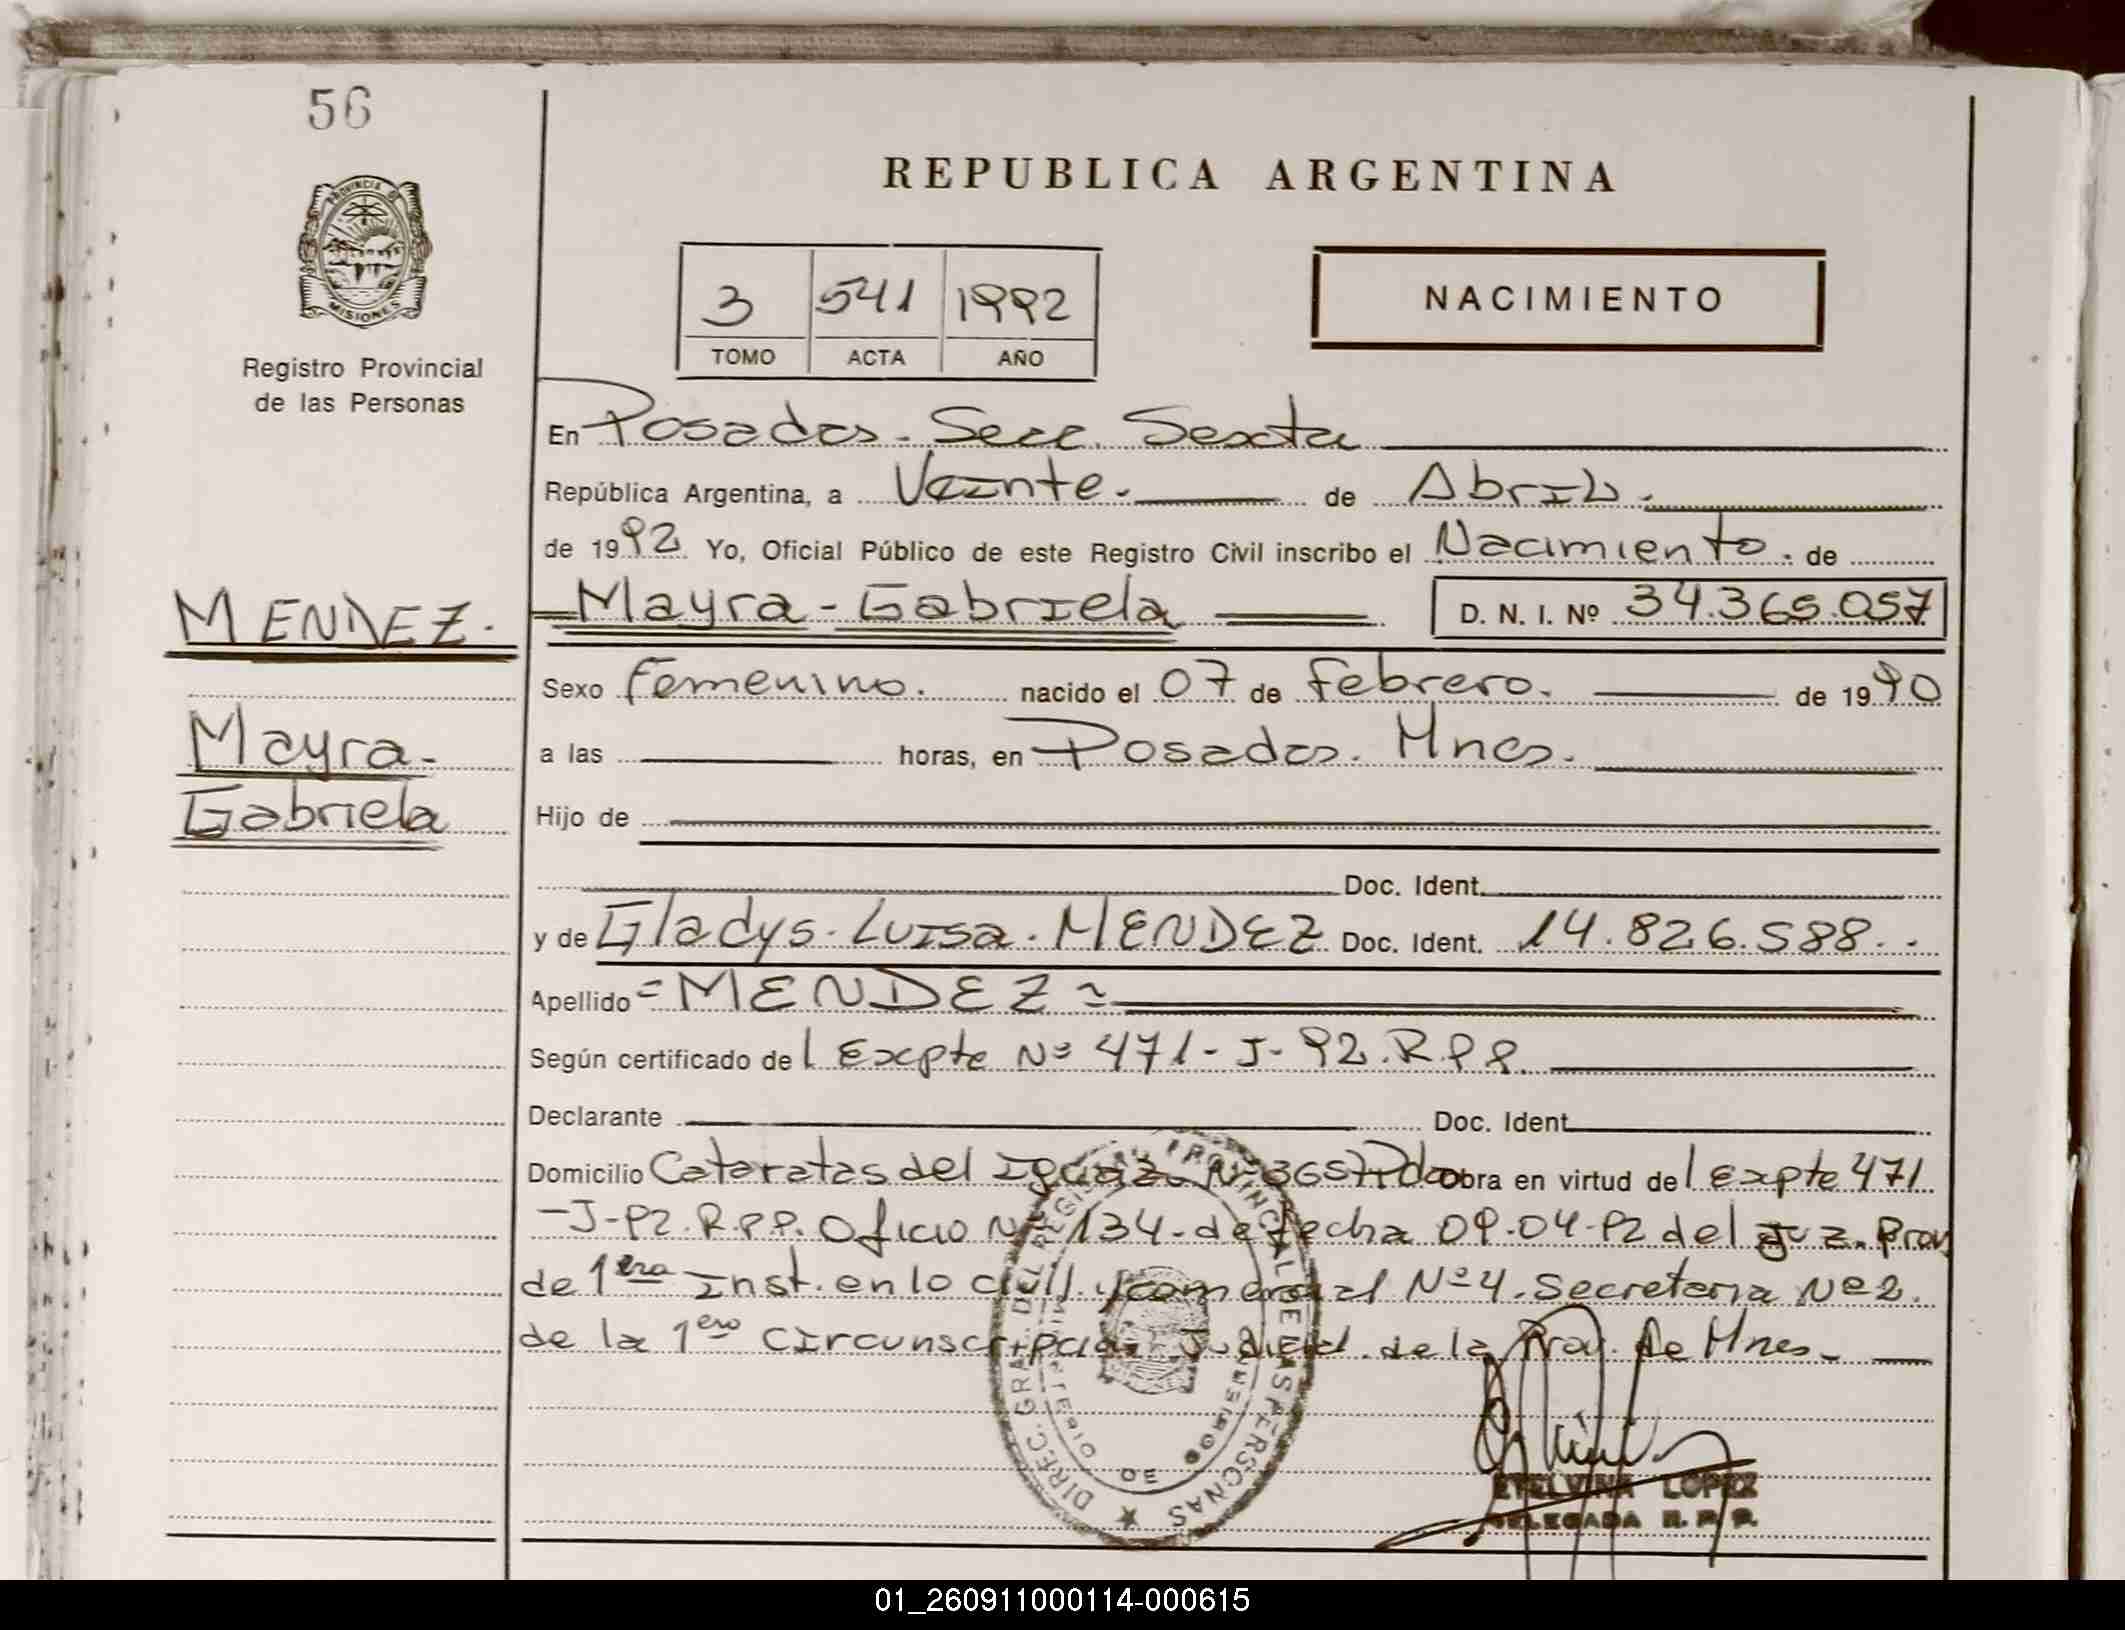 56
REPUBLICA ARGENTINA
PROVINCIA DE
MISIONES
Registro Provincial
de las Personas
3 541 1992
TOMO ACTA AÑO
NACIMIENTO
En Posadas - Secc. Sexta
República Argentina, a Veinte. de Abril.
de 1992 Yo, Oficial Público de este Registro Civil inscribo el Nacimiento. de
MENDEZ.
Mayra - Gabriela D. N. I. Nº 34.365.057
Sexo Femenino. nacido el 07 de Febrero. de 1990
Mayra -
Gabriela
a las horas, en Posadas. Mnes.
Hijo de
Doc. Ident.
y de Gladys. Luisa. MENDEZ Doc. Ident. 14.826.588.
Apellido = MENDEZ =
Según certificado del Expte Nº 471 - J - 92. R.P.P.
Declarante Doc. Ident
Domicilio Cataratas del Iguazú Nº 3657 Pdas obra en virtud del Expte 471
- J - 92. R.P.P. Oficio Nº 134 - de fecha 09-04-92 del Juz. Prov
de 1era Inst. en lo civil y comercial Nº 4. Secretaria Nº 2.
de la 1era circunscripción Judicial. de la Prov. de Mnes -
DIREC. GRAL. DEL REGISTRO PROVINCIAL DE LAS PERSONAS
MINISTERIO DE GOBIERNO
ETELVINA LOPEZ
DELEGADA R. P. P.
01_260911000114-000615